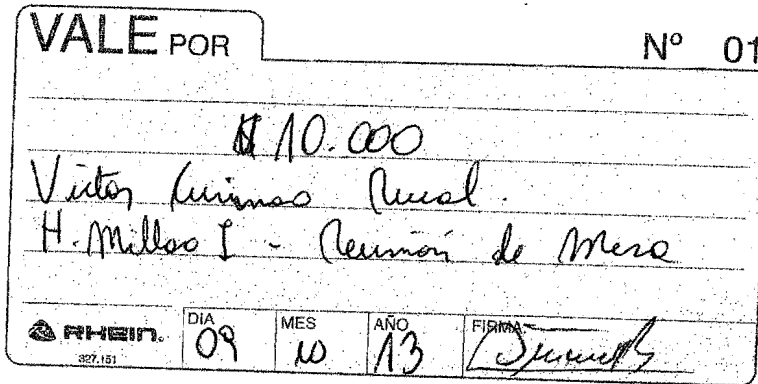 VALE POR
Nº 01
$ 10.000
Victor Rural.
H. Millao I - Reunión de Mesa
RHEIN.
327.151
DIA 09
MES 10
AÑO 13
FIRMA